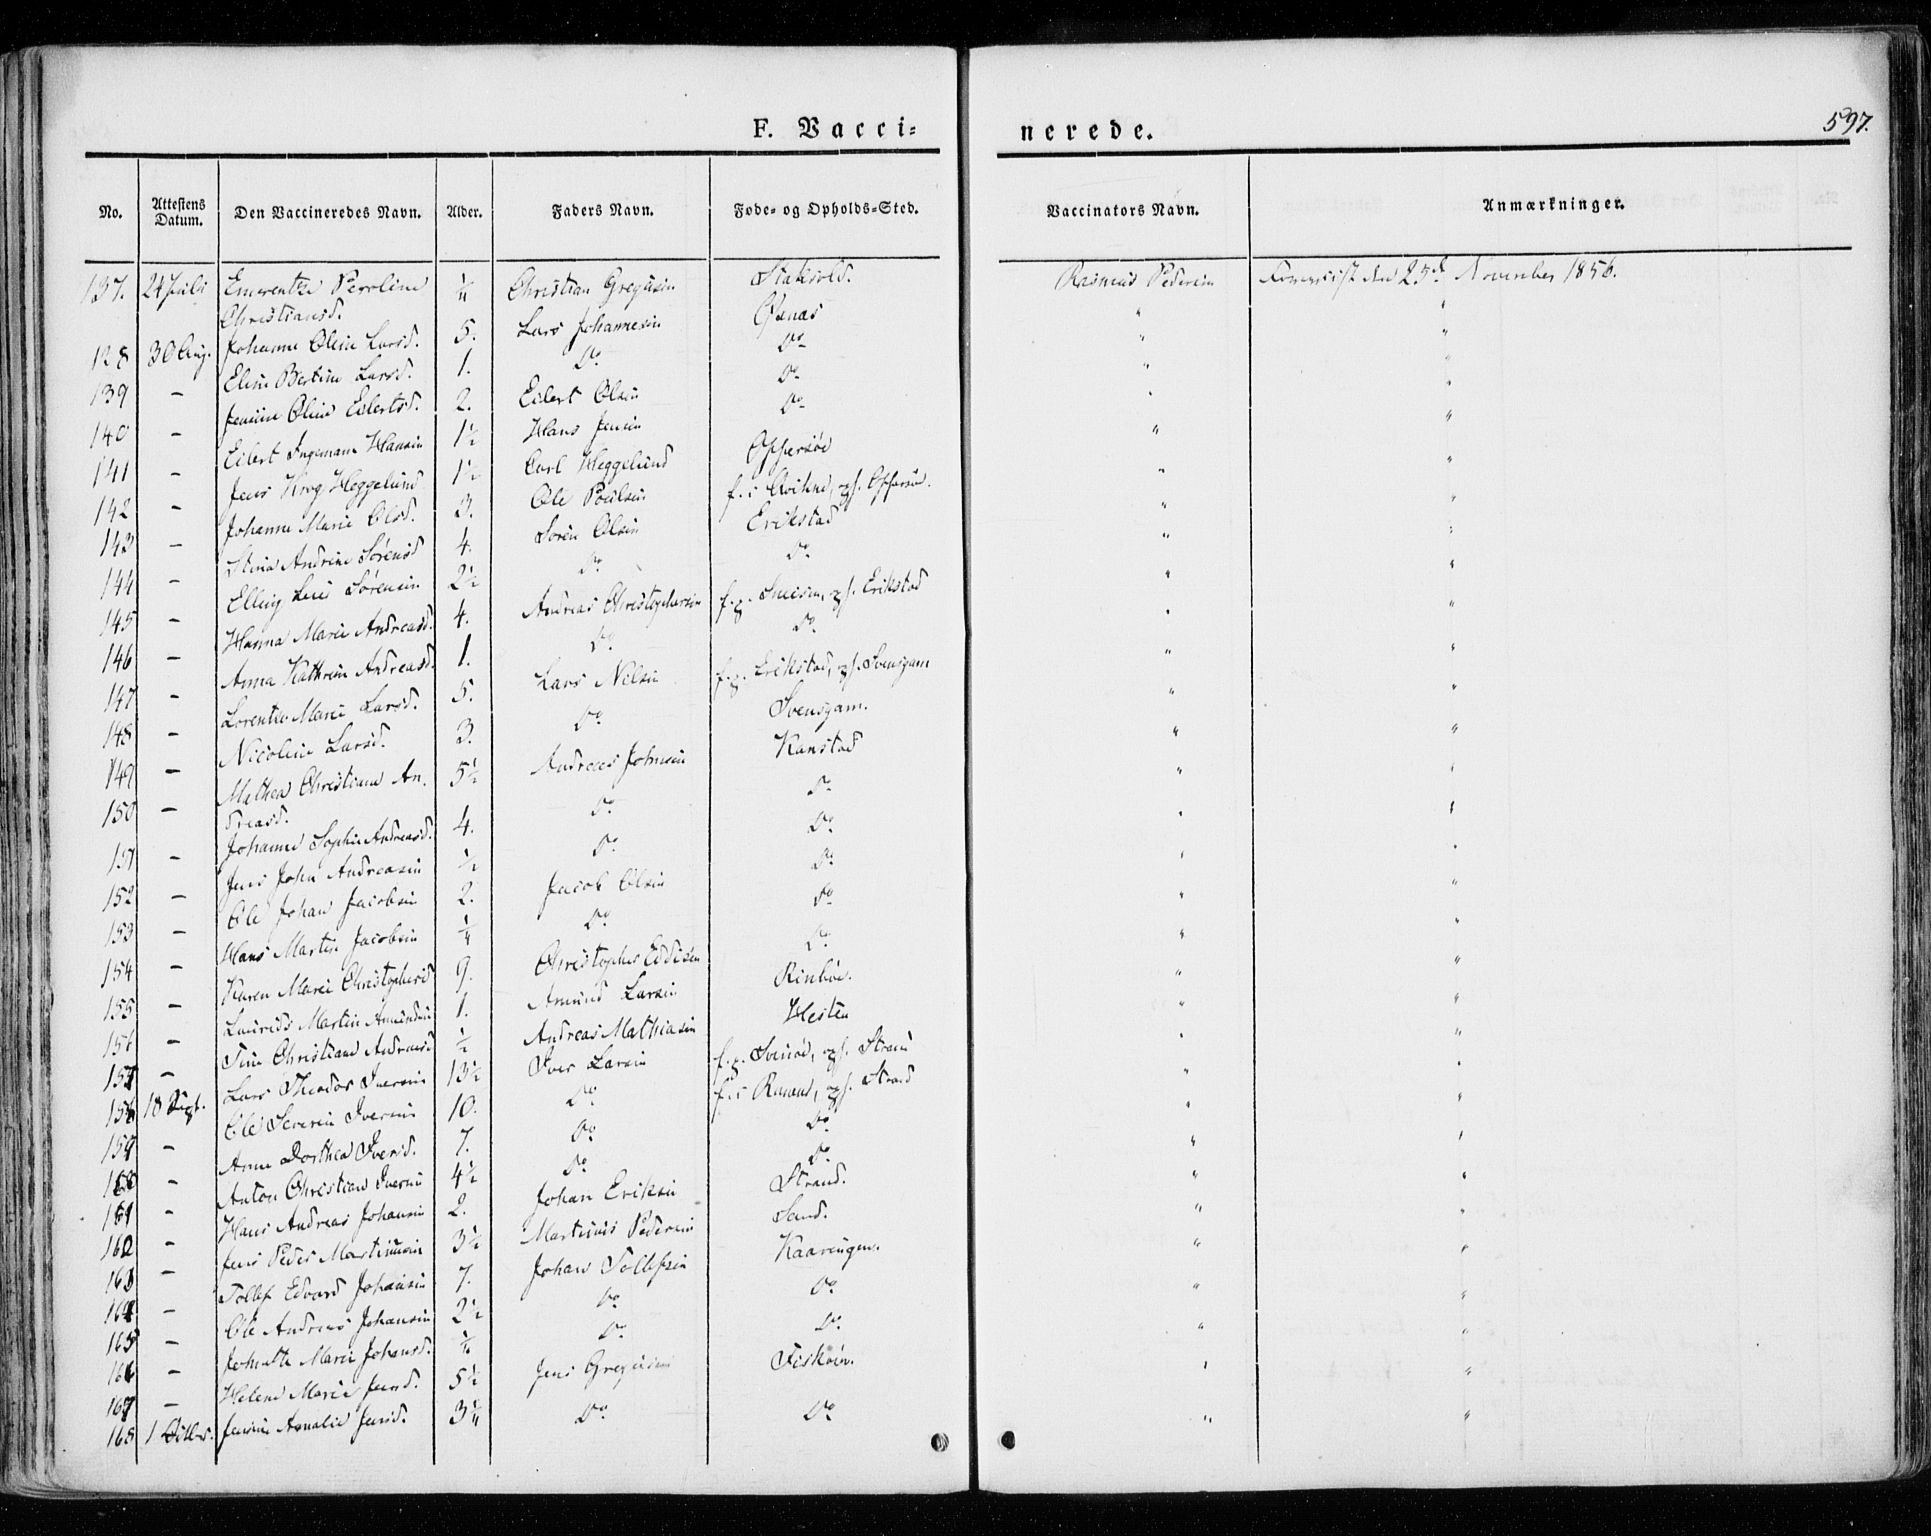 F. Vacci=
nerede.
597.
No. Attestens Datum. Den Vaccineredes Navn. Alder. Faders Navn. Føde- og Opholds-Sted. Vaccinators Navn. Anmærkninger.
137. 24 Juli Emerentze Peroline ¼ Christian Gregusin Rasmus Pedersen den 25d November 1856.
Christiansd.
128 30 Aug. Johanne Oline Larsd. 5. Lars Johannesin Qvnæs " "
139 – Eline Bertine Larsd. 1. Do Do " "
140 – Jensine Oline Eilertsd. 2. Eilert Olsin Do " "
141 – Eilert Ingemann Hansin 1½ Hans Jensin Do " "
142 – Jens Krog Heggelund 1½ Carl Heggelund Offersøe " "
143 – Johanne Marie Olsd. 3. Ole Poulsin " "
144 – Stina Andrine Sørensd 4. Søren Olsin Erikstad " "
145 – Elling Sørensin 2½ Do Do " "
146 – Hanna Marie Andreasd. 4. Andreas Christophersin opf. Erikstad " "
147 – Anna Kathrine Andreasd. 1. Do Do " "
148 – Lorentze Marie Larsd. 5. Lars Nilsin f.p. Erikstad, opf. Svensgam " "
149 – Nicoline Larsd. 3. Do Svensgam. " "
150 – Mathea Christiane An- 5½ Andreas Johnsin Kanstad " "
dreasd.
151 – Johanne Sophie Andreasd. 4. Do Do " "
152 – Jens John Andreasin ½ Do Do " "
153 – Ole Johan Jacobsin 2. Jacob Olsin Do " "
154 – Hans Martin Jacobsin ¼ Do Do " "
155 – Karen Marie Christophersd 9. Christopher Eddisen Do " "
156 – Laurids Martin Amundsin 1. Amund Larsin Rinbøe. " "
157 – Tine Christiane Andreasd ½ Andreas Mathiasin Hesten " "
158 18 Sept. Lars Theodor Iversin 13½ Iver Larsin opf. Strand " "
159 – Ole Severin Iversin 10. Do opf. Strand " "
160 – Anne Dorthea Iversd. 7. Do Do " "
161 – Anton Christian Iversin 4½ Do Do " "
162 – Hans Andreas Johansin 2. Johan Eriksin Strand. " "
163 – Jens Peder Martinusin 3½ Martinus Pedersin Sand. " "
164 – Tollef Edvard Johansin 7. Johan Tollefsin Kaaringen. " "
165 – Ole Andreas Johansin 2½ Do Do " "
166 – Marie Johansd. Do Do " "
167 – Helene Marie Jensd. 5½ Jens Gregusin Fiskøin. " "
168 1 Octbr. Jensine Amalie Jensd. 3¼ Do Do " "